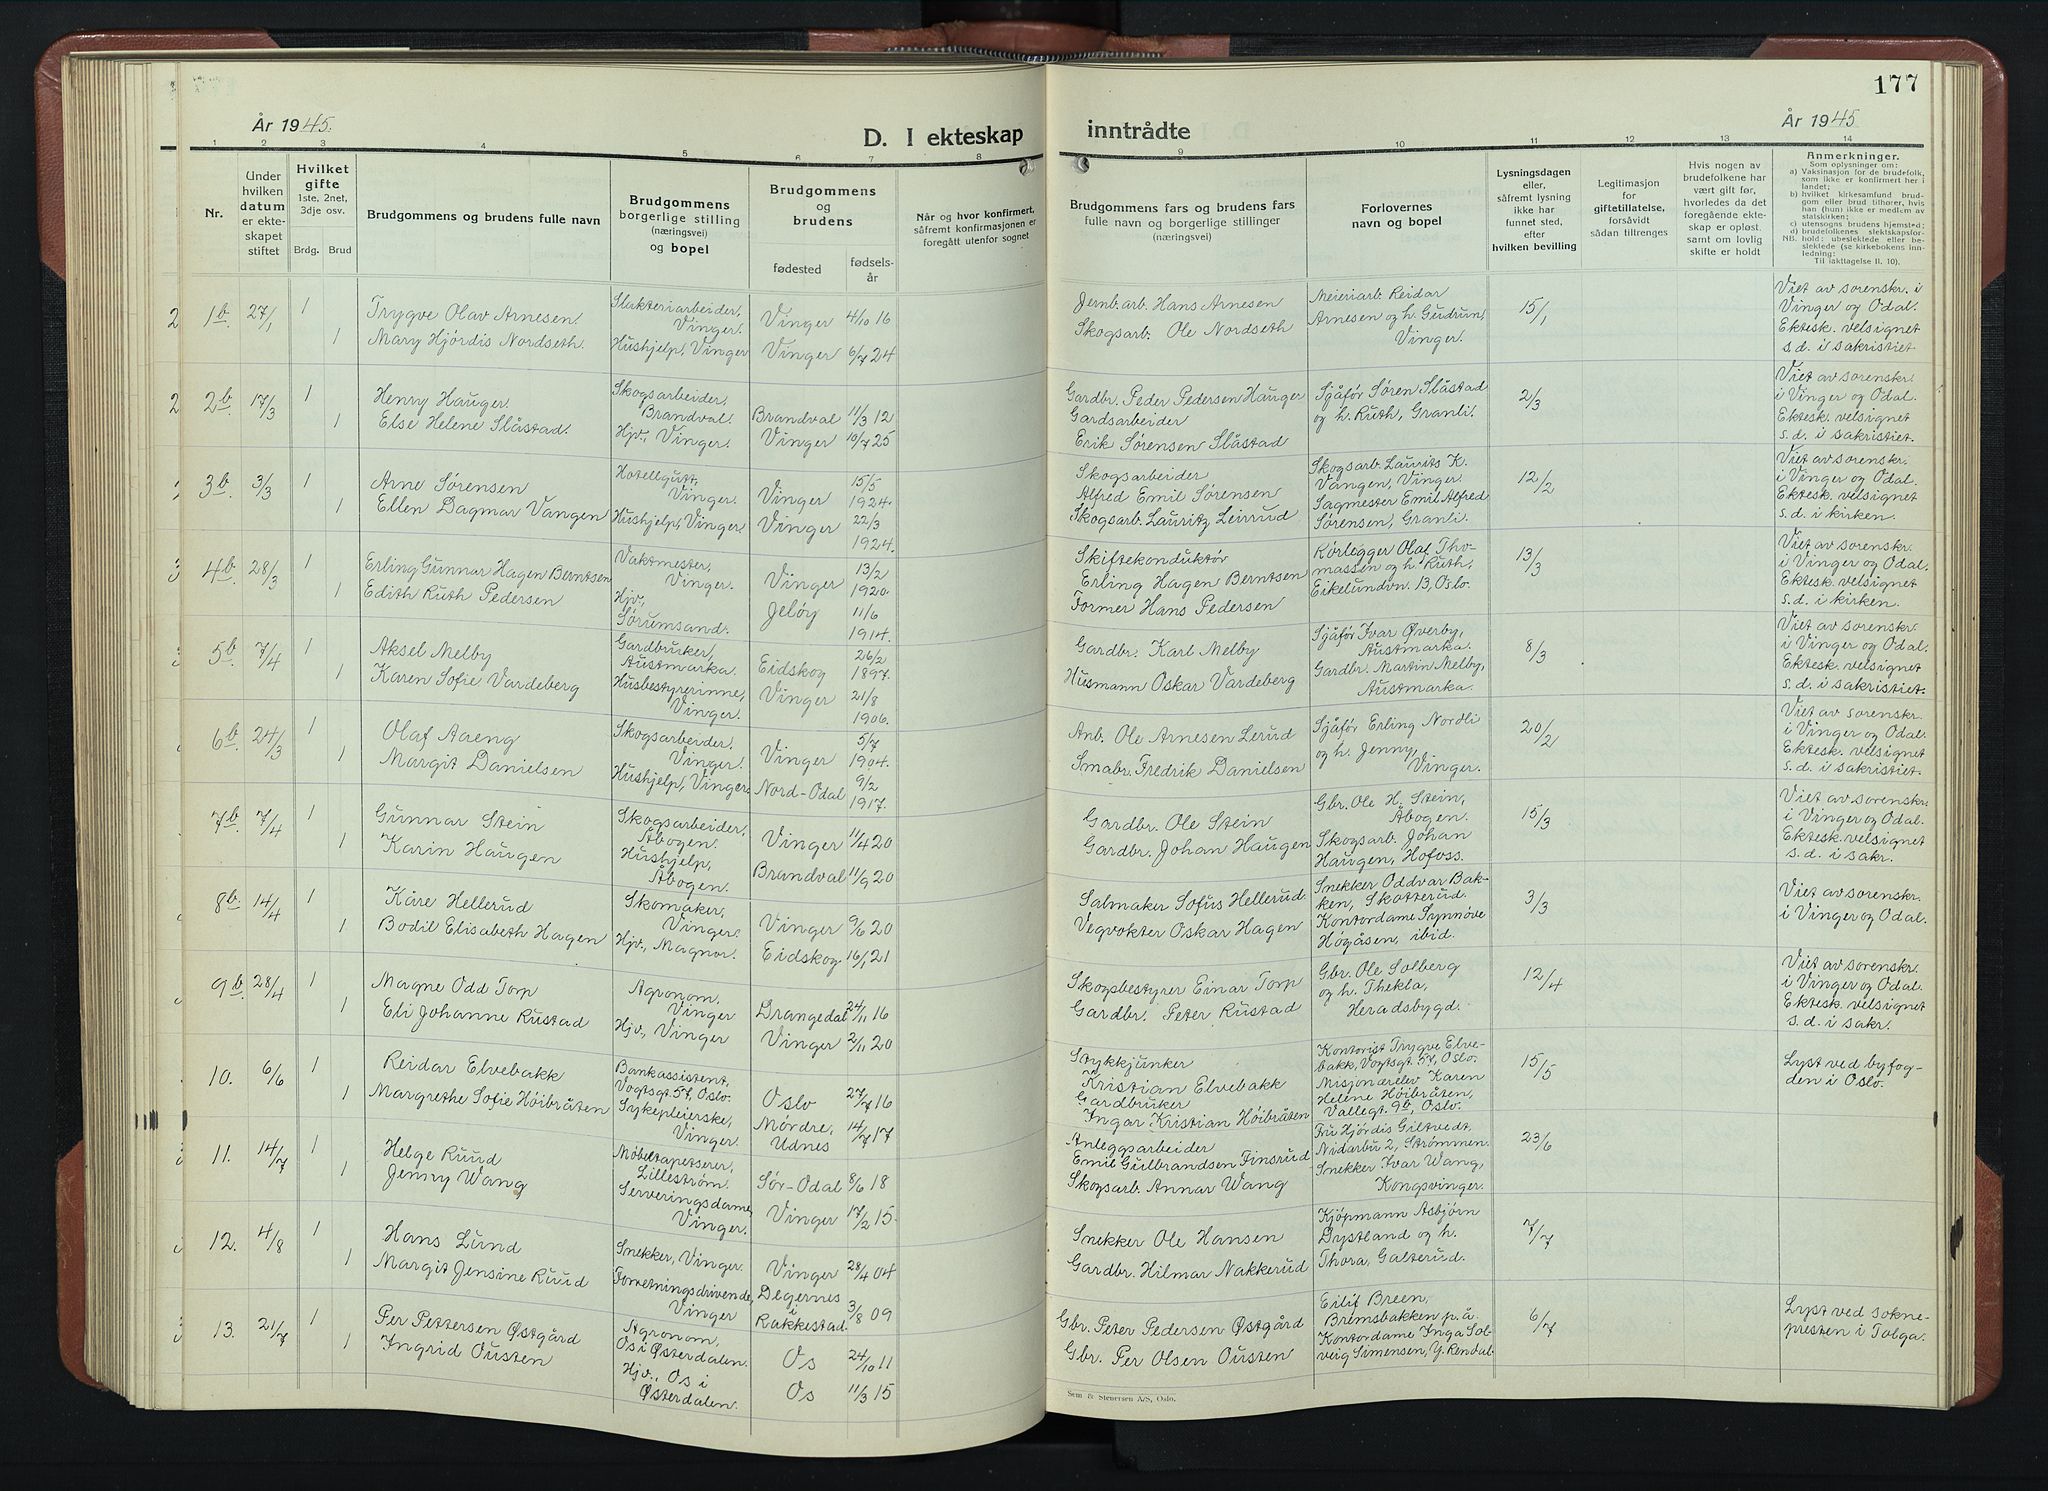 177
År 1945.
D. I ekteskap inntrådte
År 1945
1 2 3 4 5 6 7 8 9 10 11 12 13 14
Nr.
Under
hvilken
datum
er ekte-
skapet
stiftet
Hvilket
gifte
1ste, 2net,
3dje osv.
Brdg. Brud
Brudgommens og brudens fulle navn
Brudgommens
borgerlige stilling
(næringsvei)
og bopel
Brudgommens
og
brudens
fødested
fødsels-
år
Når og hvor konfirmert,
såfremt konfirmasjonen er
foregått utenfor sognet
Brudgommens fars og brudens fars
fulle navn og borgerlige stillinger
(næringsvei)
Forlovernes
navn og bopel
Lysningsdagen
eller,
såfremt lysning
ikke har
funnet sted,
efter
hvilken bevilling
Legitimasjon
for
giftetillatelse,
forsåvidt
sådan tiltrenges
Hvis nogen av
brudefolkene har
vært gift før,
hvorledes da det
foregående ekte-
skap er opløst.
samt om lovlig
skifte er holdt
Anmerkninger.
Som oplysninger om:
a) Vaksinasjon for de brudefolk,
som ikke er konfirmert her i
landet;
b) hvilket kirkesamfund brud-
gom eller brud tilhører, hvis
han (hun) ikke er medlem av
statskirken;
c) utensogns brudens hjemsted;
d) brudefolkenes slektskapsfor-
NB. hold: ubeslektede eller be-
slektede (se kirkebokens inn-
ledning;
Til iakttagelse II. 10).
1b. 27/1 1
Trygve Olav Arnesen.
1 Mary Hjørdis Nordseth.
Slakteriarbeider,
Vinger.
Hushjelp, Vinger
Vinger 4/10 16
Vinger 6/7 24
Jernb.arb. Hans Arnesen
Skogsarb. Ole Nordseth
Meieriarb. Reidar
Arnesen og h. Gudrun,
Vinger.
15/1
Viet av sorenskr. i
Vinger og Odal.
Ektesk. velsignet
s.d. i sakristiet.
2b. 17/3 1
Henry Hauger.
1 Else Helene Slåstad.
Skogsarbeider,
Brandval.
Hjv., Vinger.
Brandval 11/3 12
Vinger 10/7 25
Gardbr. Peder Pedersen Hauger
Gardsarbeider
Erik Sørensen Slåstad
Sjåfør Søren Slåstad
og h. Ruth, Granli.
2/3
Viet av sorenskr.
i Vinger og Odal.
Ektesk. velsignet
s.d. i sakristiet.
3b. 3/3 1
Arne Sørensen
1 Ellen Dagmar Vangen
Hotellgutt,
Vinger.
Hushjelp, Vinger.
Vinger 15/5
1924.
Vinger 22/3
1924.
Skogsarbeider
Alfred Emil Sørensen
Skogsarb. Lauritz Leirrud
Skogsarb. Laurits K.
Vangen, Vinger.
Sagmester Emil Alfred
Sørensen, Granli.
12/2
Viet av sorenskr.
i Vinger og Odal.
Ektesk. velsignet
s.d. i kirken.
4b. 28/3 1
Erling Gunnar Hagen Berntsen
1 Edith Ruth Pedersen
Vaktmester,
Vinger.
Hjv.,
Sørumsand.
Vinger 13/2
1920.
Jeløy 11/6
1914.
Skiftekonduktør
Erling Hagen Berntsen
Former Hans Pedersen
Rørlegger Olaf Tho-
massen og h. Ruth,
Eikelundvn. 13, Oslo.
13/3
Viet av sorenskr.
i Vinger og Odal.
Ektesk. velsignet
s.d. i kirken.
5b. 7/4 1
Aksel Melby
1 Karen Sofie Vardeberg
Gardbruker,
Austmarka.
Husbestyrerinne,
Vinger.
Eidskog 26/2
1897.
Vinger 21/8
1906.
Gardbr. Karl Melby
Husmann Oskar Vardeberg
Sjåfør Ivar Øverby,
Austmarka.
Gardbr. Martin Melby,
Austmarka.
8/3
Viet av sorenskr.
i Vinger og Odal.
Ektesk. velsignet
s.d. i sakristiet.
6b. 24/3 1
Olaf Aareng
1 Margit Danielsen
Skogsarbeider.
Vinger.
Hushjelp, Vinger.
Vinger 5/7
1904.
Nord-Odal 9/2
1917.
Arb. Ole Arnesen Lerud
Småbr. Fredrik Danielsen
Sjåfør Erling Nordli
og h. Jenny,
Vinger.
20/2
Viet av sorenskr.
i Vinger og Odal.
Ektesk. velsignet
s.d. i sakristiet.
7b. 7/4 1
Gunnar Stein
1 Karin Haugen
Skogsarbeider,
Åbogen.
Hushjelp,
Åbogen.
Vinger 11/4 20
Brandval 11/9 20
Gardbr. Ole Stein
Gardbr. Johan Haugen
Gbr. Ole H. Stein,
Åbogen.
Skogsarb. Johan
Haugen, Hofoss.
15/3
Viet av sorenskr.
i Vinger og Odal.
Ektesk. velsignet
s.d. i sakr.
8b. 14/4 1
Kåre Hellerud
1 Bodil Elisabeth Hagen
Skomaker,
Vinger.
Hjv., Magnor.
Vinger 9/6 20
Eidskog 16/1 21
Salmaker Sofus Hellerud
Vegvokter Oskar Hagen
Snekker Oddvar Bak-
ken, Skotterud.
Kontordame Synnøve
Høgåsen, ibid.
3/3
Viet av sorenskr.
i Vinger og Odal.
9b. 28/4 1
Magne Odd Torp
1 Eli Johanne Rustad
Agronom.
Vinger
Hjv., Vinger
Drangedal 24/11 16
Vinger 2/11 20
Skogsbestyrer Einar Torp
Gardbr. Peter Rustad
Gbr. Ole Solberg
og h. Thekla,
Heradsbygd.
12/4
Viet av sorenskr.
i Vinger og Odal.
Ektesk. velsignet
s.d. i sakr.
10. 6/6 1
Reidar Elvebakk
1 Margrethe Sofie Høibråten
Bankassistent,
Vogtsgt. 57, Oslo.
Sykepleierske,
Vinger.
Oslo 27/7 16
Mørdre,
Udnes 14/7 17
Stykkjunker
Kristian Elvebakk
Gardbruker
Ingar Kristian Høibråten
Kontorist Trygve Elve-
bakk, Vogtsgt. 57, Oslo.
Misjonærelev Karen
Helene Høibråten,
Vallegt. 9b, Oslo.
15/5
Lyst ved byfog-
den i Oslo.
11. 14/7 1
Helge Ruud
1 Jenny Wang
Møbeltapetserer,
Lillestrøm.
Serveringsdame,
Vinger.
Sør-Odal 8/6 18
Vinger 17/2 15.
Anleggsarbeider
Emil Gulbrandsen Finsrud
Skogsarb. Annar Wang
Fru Hjørdis Giltvedt,
Nidarbu 2, Strømmen.
Snekker Ivar Wang,
Kongsvinger.
23/6
12. 4/8 1
Hans Lund
1 Margit Jensine Ruud
Snekker, Vinger.
Forretningsdrivende,
Vinger
Vinger 28/4 04
Degernes
i
Rakkestad. 3/8 09
Snekker Ole Hansen
Gardbr. Hilmar Nakkerud
Kjøpmann Asbjørn
Dystland og h.
Thora, Galterud.
7/7
13. 21/7 1
Per Pettersen Østgård
1 Ingrid Ousten
Agronom,
Os i Østerdalen.
Hjv., Os i
Østerdalen.
Os 24/10 11
Os 11/3 15
Gbr. Peter Pedersen Østgård
Gbr. Per Olsen Ousten
Eilif Breen,
Bremsbakken p.å.
Kontordame Inga Sol-
veig Simensen, Y. Rendal.
6/7
Lyst ved sokne-
presten i Tolga.
Sem & Stenersen A/S, Oslo.